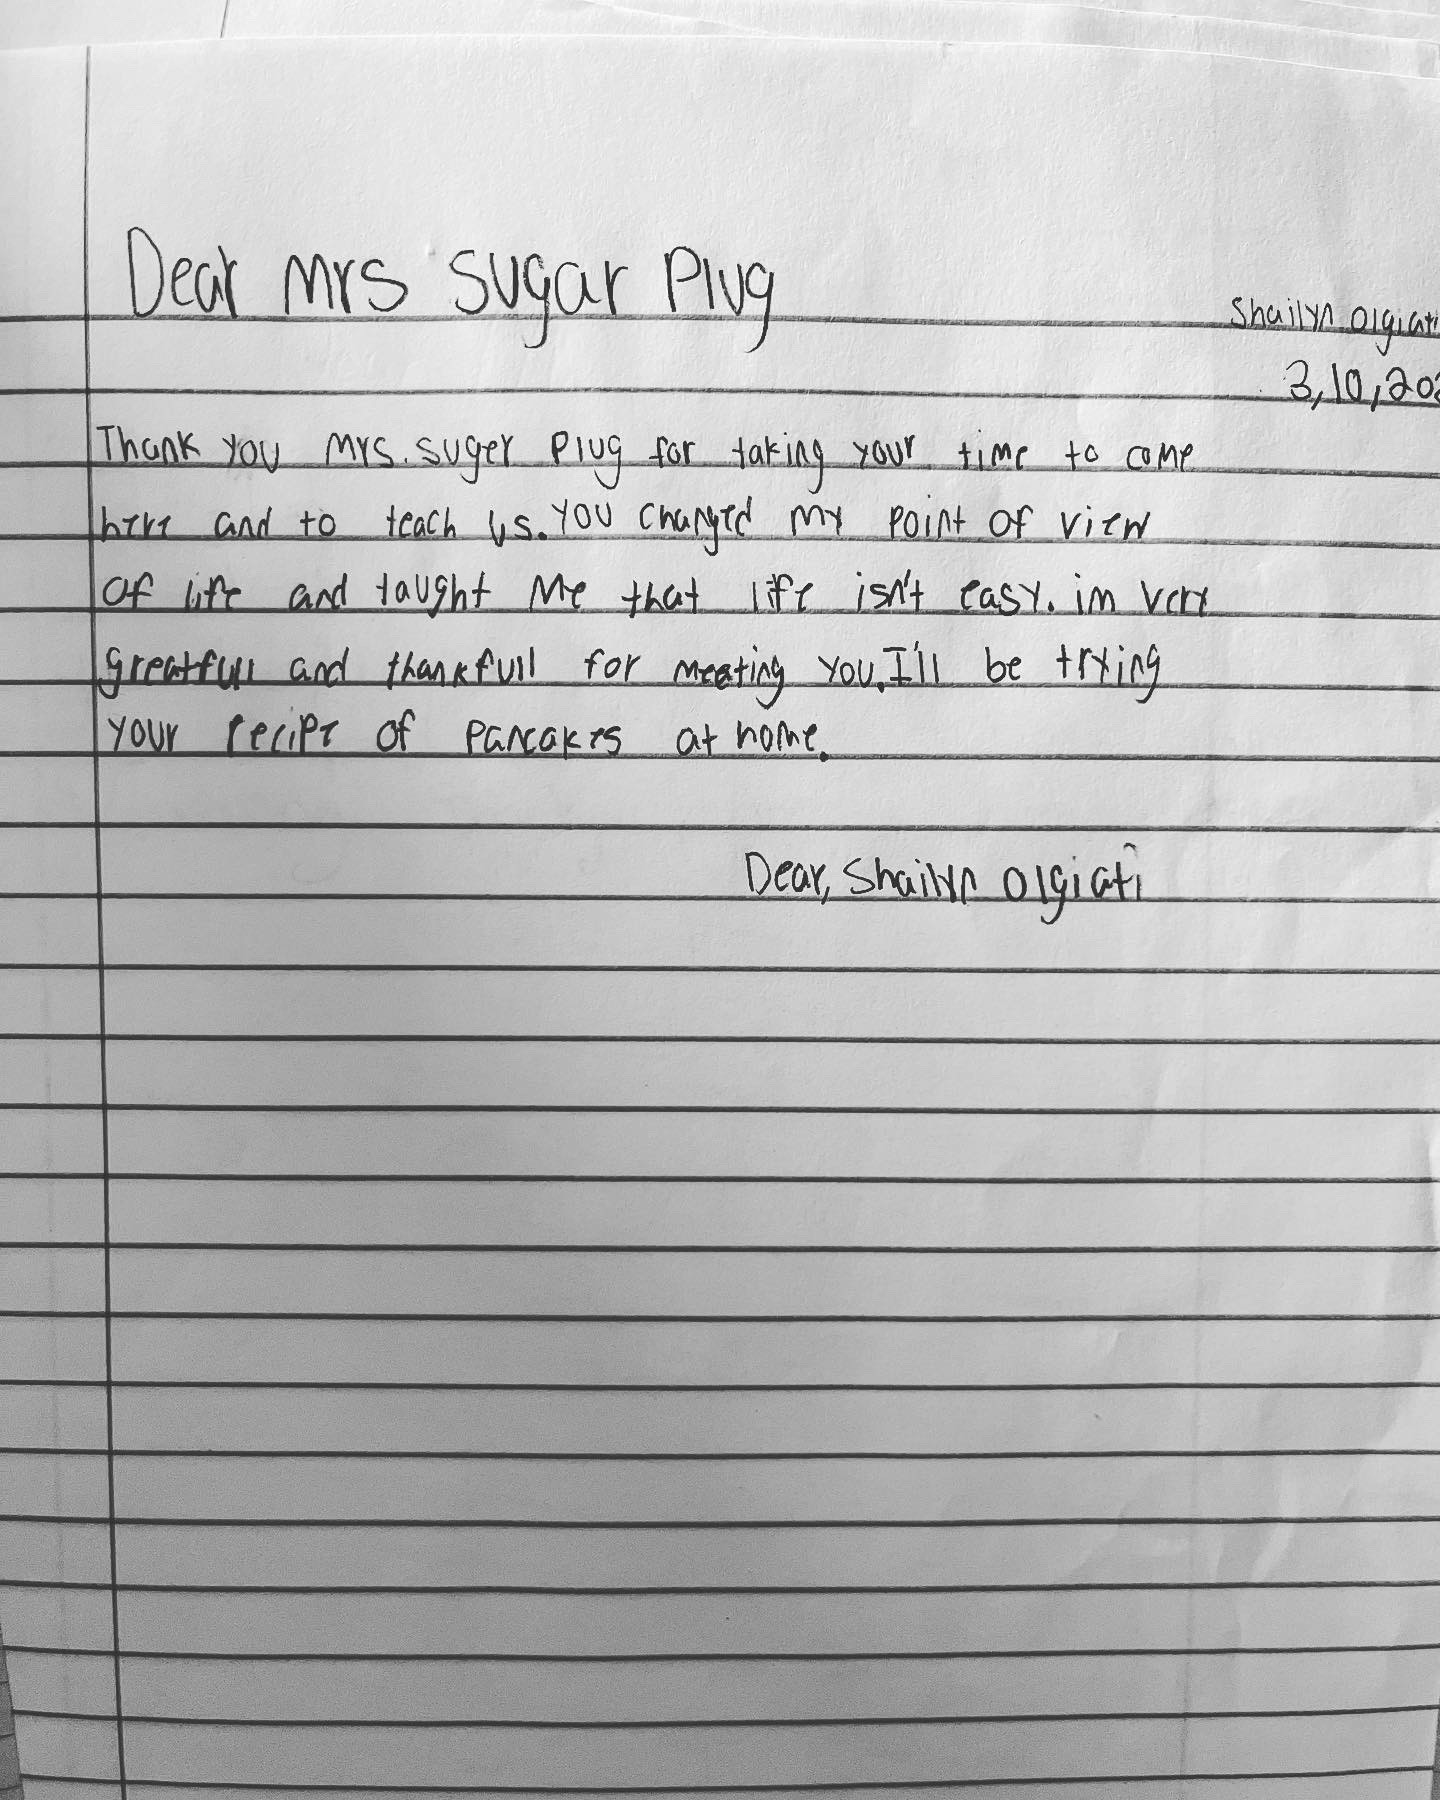 Dear Mrs Sugar Plug
Shailyn Olgiati
3,10,202
Thank you Mrs. suger Plug for taking your time to come
here and to teach us. You changed my point of view
of life and taught me that life isn't easy. im very
greatfull and thankfull for meeting you. I'll be trying
your recipe of pancakes at home.
Dear, Shailyn Olgiati